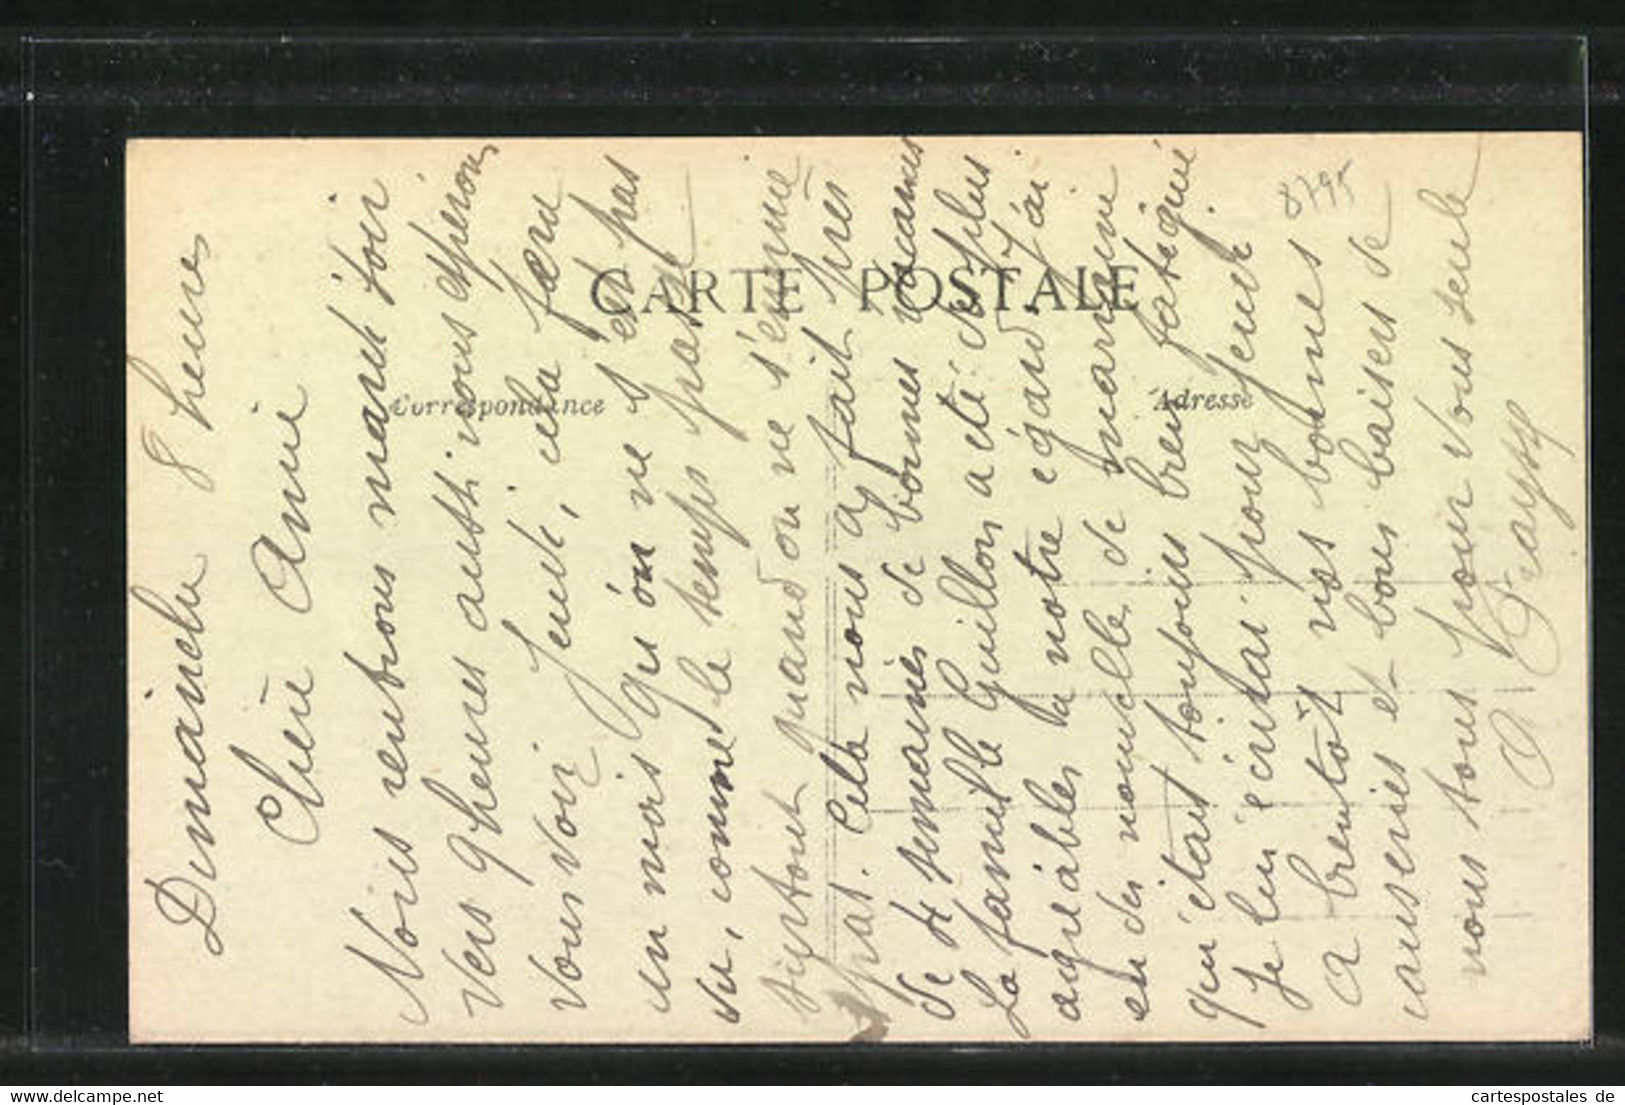 CARTE POSTALE
Correspondance
Adresse
8795
Dimanche 8 heures
Chère Amie
Nous rentrons mardi soir
vers 9 heures aussi nous espérons
vous voir jeudi, cela fera
un mois qu'on ne s'est pas
vu, comme le temps passe
surtout quand on ne s'ennuie
pas. Cela nous a fait près
de semaines de bonnes vacances
La famille Guillon a été des plus
agréables à notre égard. J'ai
eu des nouvelles de marraine
qui était toujours bien fatiguée
Je lui écrirai pour
A bientôt nos bonnes
causeries et bons baisers de
nous tous pour vous seule
A
www.cartespostales de